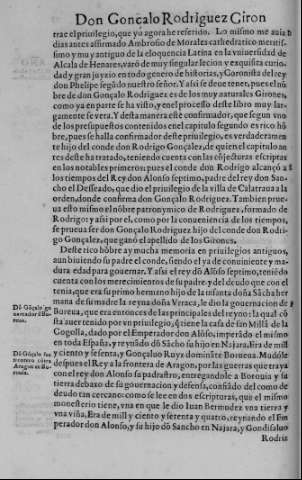 Don Gonçalo Rodriguez Giron
trae el priuilegio, que yo agora he referido. Lo mismo me auia
dias antes affirmado Ambrosio de Morales cathedratico meritis-
simo y muy antiguo de la eloquencia Latina en la vniuersidad de
Alcala de Henares, varõ de muy singular lecion y exquisita curio-
dad y gran juyzio en todo genero de historias, y Coronista del rey
don Phelipe segũdo nuestro señor. Y assi se deue tener, pues el nõ-
bre de don Gonçalo Rodriguez es de los muy naturales Girones,
como ya en parte se ha visto, y en el processo deste libro muy lar-
gamente se vera. Y desta manera este confirmador, que segun vno
de los presupuestos contenidos enel capitulo segundo es rico hõ-
bre, pues se halla confirmador deste priuilegio, es verdaderamen-
te hijo del conde don Rodrigo Gonçalez, de quien el capitulo an
tes deste ha tratado, teniendo cuenta con las cõjecturas escriptas
en los notables primeros: pues el conde don Rodrigo alcançó a
los tiempos del Rey don Alonso septimo, padre del rey don San-
cho el Desseado, que dio el priuilegio de la villa de Calatraua a la
orden, donde confirma don Gonçalo Rodriguez. Tambien prue-
ua esto mismo el nõbre patronymico de Rodriguez, formado de
Rodrigo: y assi por el, como por la conueniencia de los tiempos,
se prueua ser don Gonçalo Rodriguez hijo del conde don Rodri-
go Gonçalez, que ganó el apellido de los Girones.
Deste rico hõbre ay mucha memoria en priuilegios antiguos,
aun biuiendo su padre el conde, siendo el ya de conuiniente y ma-
dura edad para gouernar. Y assi el rey dõ Alõso septimo, teniẽdo
cuenta con los merecimientos de su padre y del deudo que con el
tenia, que era su primo hermano hijo de la infanta doña Sãcha her
mana de su madre la reyna doña Vrraca, le dio la gouernacion de
Boreua, que era entonces de las principales del reyno: la qual cõ
sta auer tenido por vn priuilegio, q̃ tiene la casa de san Millã de la
Cogolla, dado por el Emperador don Alõso, imperãte dõ Alõso
en toda España, y reynãdo dõ Sãcho su hijo en Najara, Era de mil
y ciento y sesenta, y Gonçaluo Ruyz dominãte Boreua. Mudóle
despues el Rey a la frontera de Aragon, por las guerras que traya
con el rey don Alonso su padrastro, entregandole a Boreuia y su
tierra debaxo de su gouernacion y defensa, confiãdo del como de
deudo tan cercano: como se lee en dos escripturas, que el mismo
monesterio tiene, vna en que le dio Iuan Bermudez vna tierra y
vna viña, Era de mil y ciento y setenta y quatro, reynando el Em
perador don Alonso, y su hijo dõ Sancho en Najara, y Gondisaluo
Rodriz
Dõ Gõçalo go-
uernador
Dõ Gõçalo fue
frontero cõtra
Aragon en Bo-
reuia.